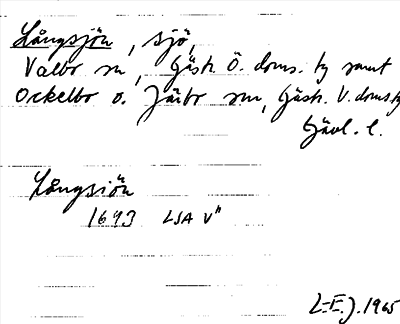 Långsjön, sjö,
Valbo sn, Gästr. Ö. doms. tg samt
Ockelbo o. Järbo snr, Gästr. V. doms. tg
Gävl. l.
Långsiön
1693 LSA V"
L-E.J. 1965